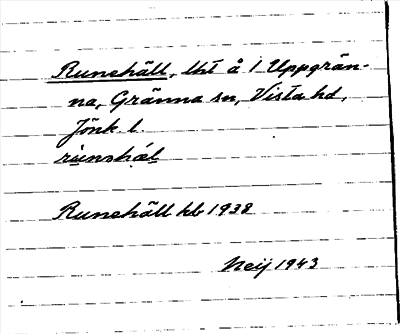 Runehäll, lht å 1 Uppgrän-
na, Gränna sn, Vista hd,
Jönk. l.
rùnshál
Runehäll hb 1938
Neij 1943